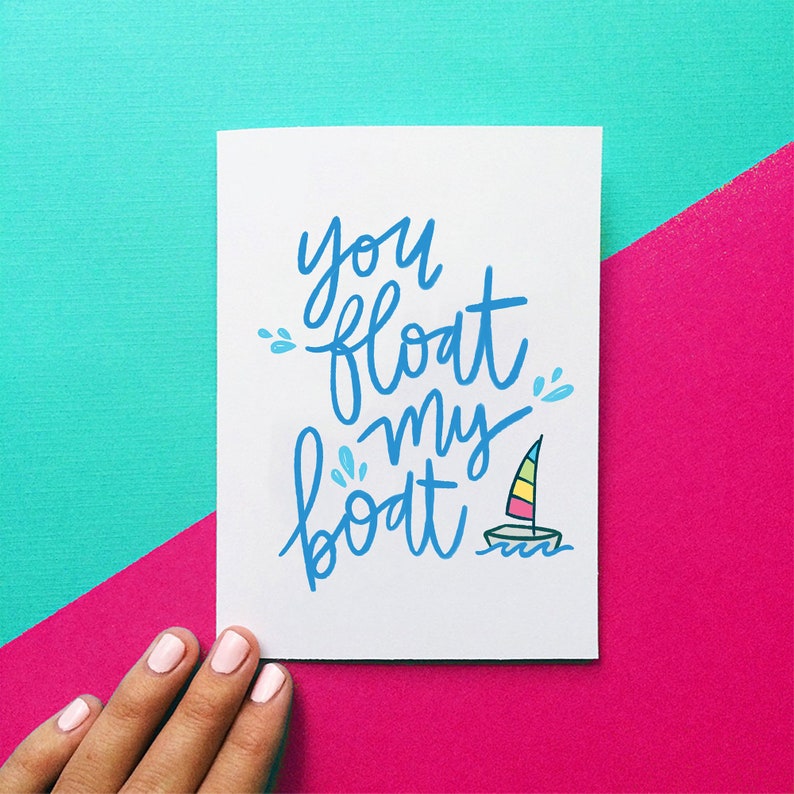 you
float
my
boat